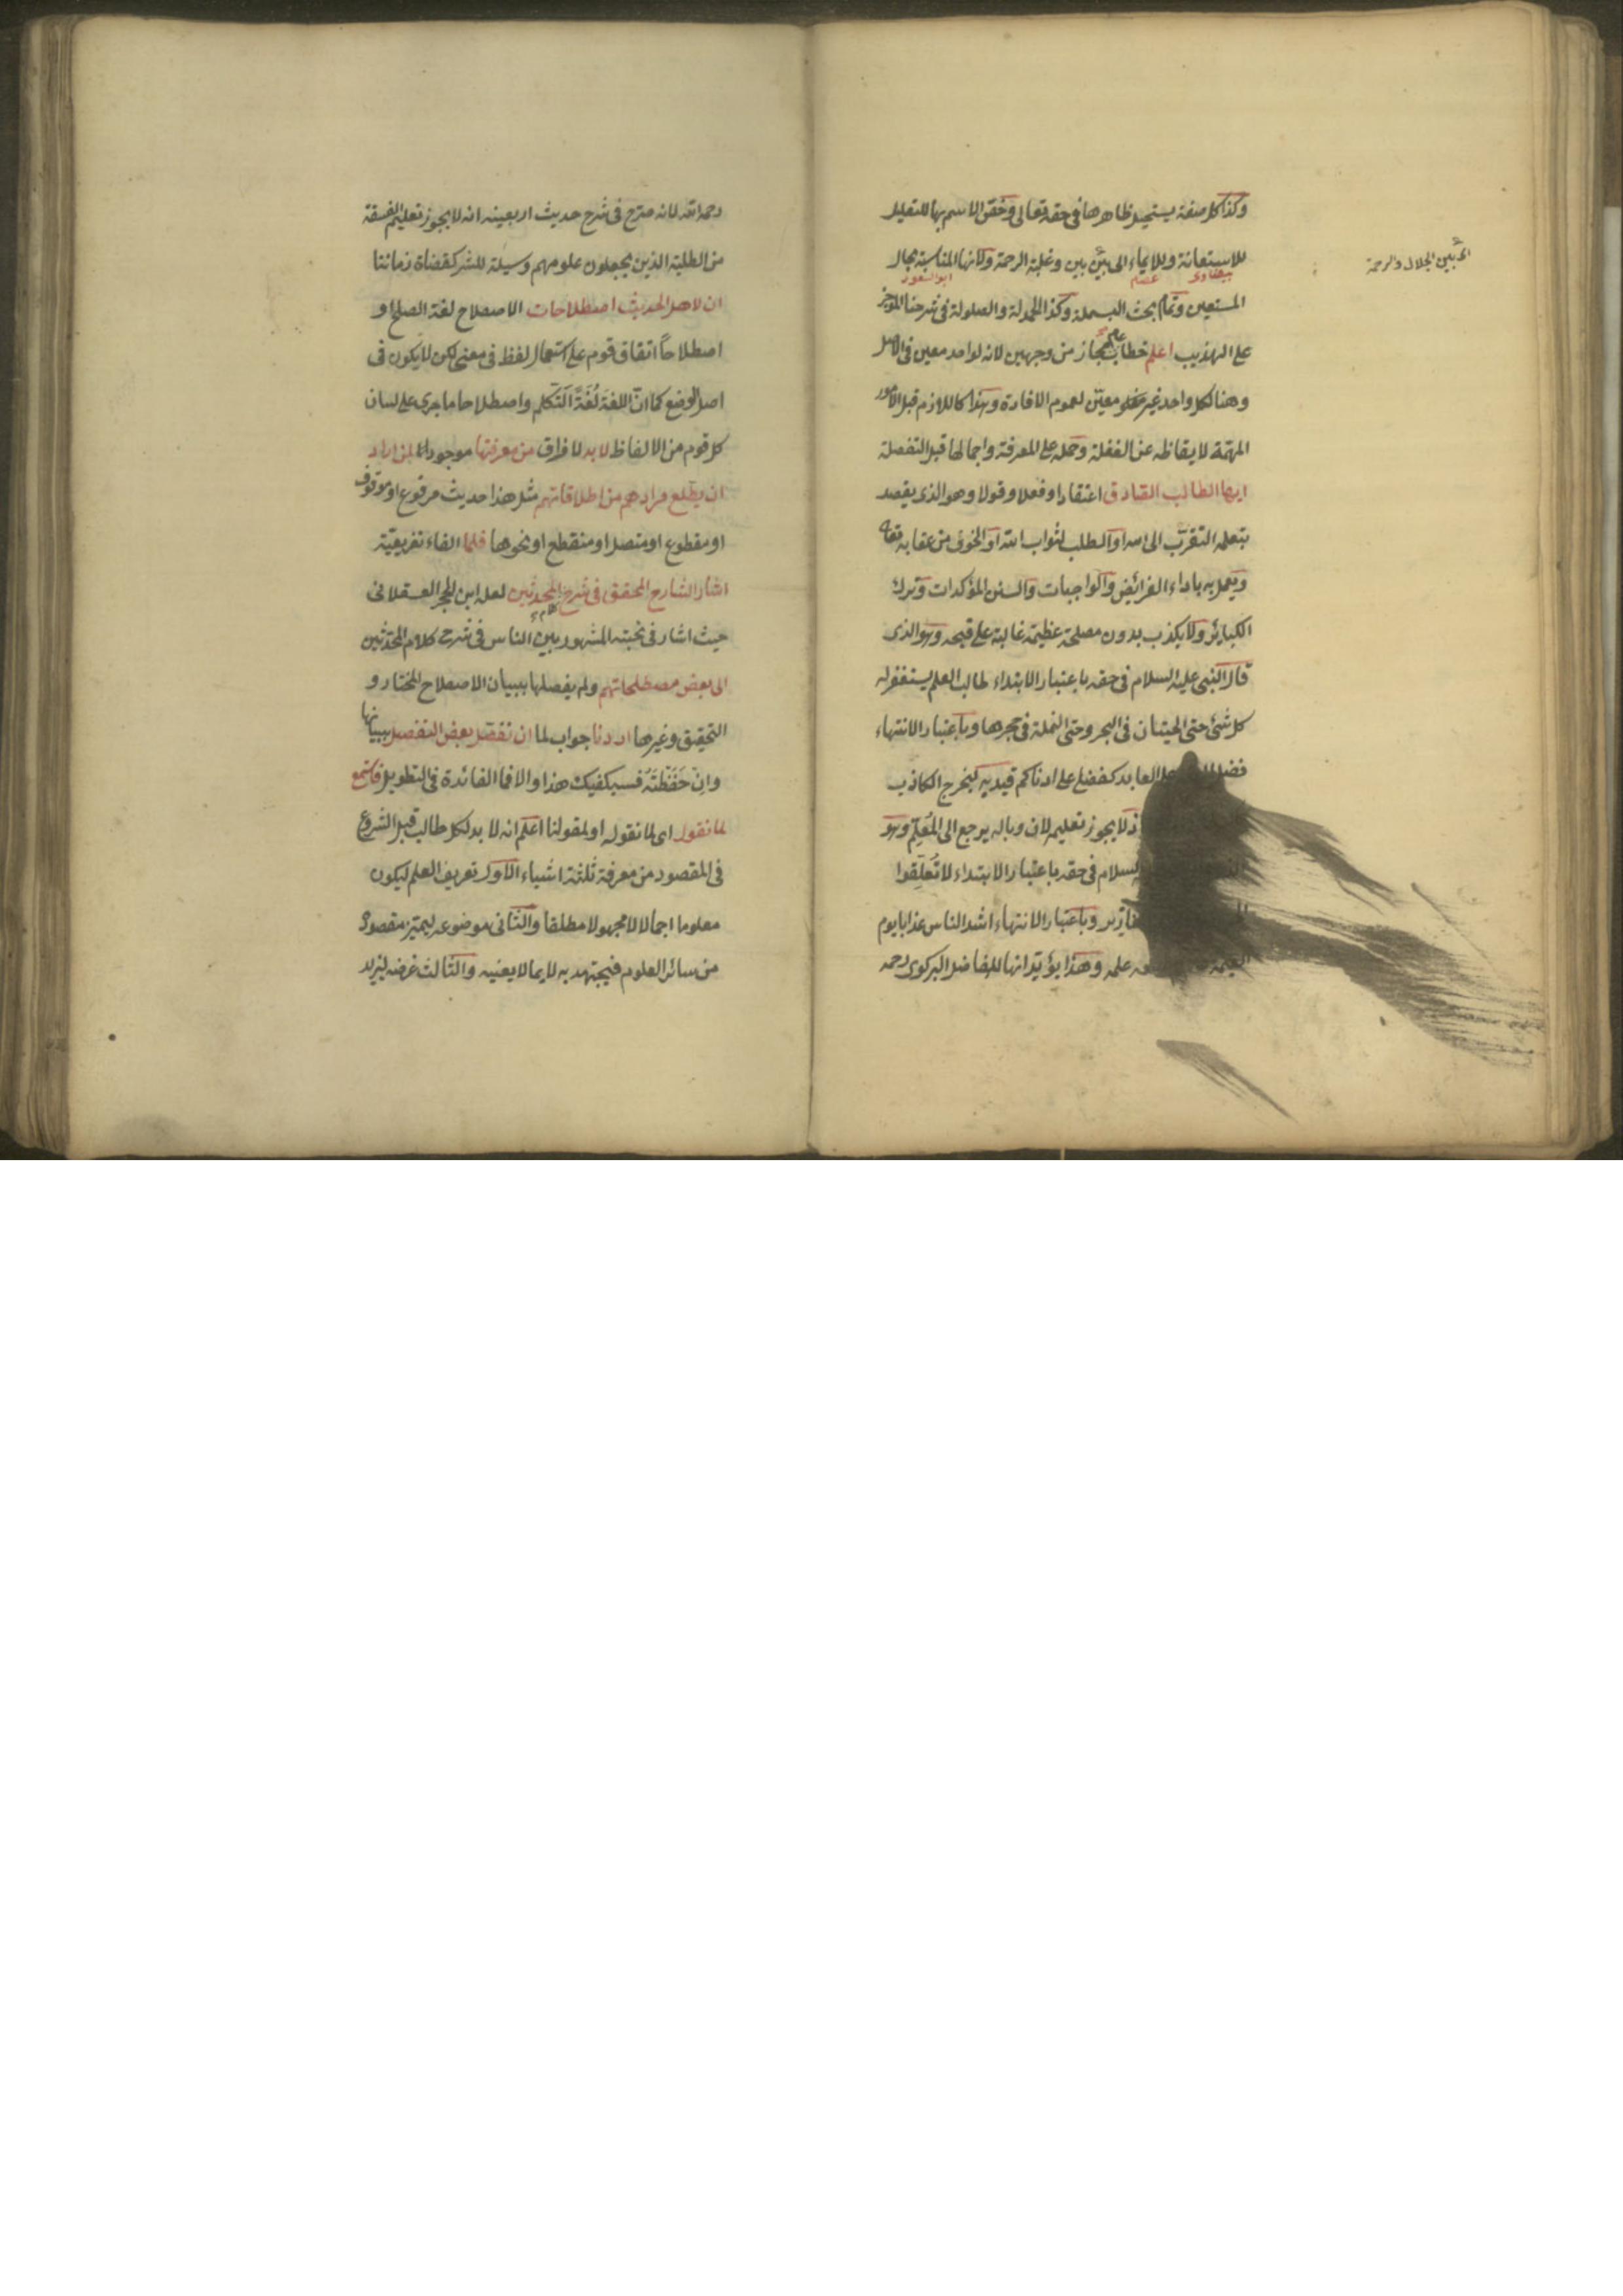 وكذا كل صفة يستحيل ظاهرها في حقه تعالى وخقق الاسم بها للتعليل
للاستعانة وللايماء الى بين بين وغلبة الرحمة ولانها المناسبة بحال
اى بين الجلال والرحمة
بيضاوى عصام ابو السعود
المستعين وتمام بحث البسملة وكذا الحمدلة والصلولة في شرحنا الموجز
على التهذيب اعلم خطاب عام مجاز من وجهين لانه لواحد معين في الاصل
وهنا لكل واحد غير معين لعموم الافادة وهذا كاللازم قبل الامور
المهمة لايقاظه عن الغفلة وحمله على المعرفة واجمالها قبل التفصلة
ايها الطالب الصادق اعتقادا وفعلا وقولا وهو الذى يقصد
بتعلمه التقرب الى الله او الطلب لثواب الله او الخوف من عقابه تعالى
ويعمل به باداء الفرائض والواجبات والسنن المؤكدات وترك
الكبائر ولا يكذب بدون مصلحة عظيمة غالبة على قبحه وهو الذى
قال النبى عليه السلام في حقه باعتبار الابتداء طالب العلم يستغفر له
كل شئ حتى الحيتان في البحر وحتى النملة في جحرها وباعتبار الانتهاء
فضل العابد كفضلى على ادناكم قيد به ليخرج الكاذب
لا يجوز تعليمه لان وباله يرجع الى المُعَلِّم وهو
السلام في حقه باعتبار الابتداء لا تُعَلِّقوا
وباعتبار الانتهاء اشد الناس عذابا يوم
علمه وهذا يؤيد انها للفاضل البركوى رحمه
رحمه الله لانه صرح في شرح حديث اربعينه انه لا يجوز تعليم الفسقة
من الطلبة الذين يجعلون علومهم وسيلة للشر كقضاة زماننا
ان لاهل الحديث اصطلاحات الاصطلاح لغة الصلح او
اصطلاحاً اتفاق قوم على استعمال لفظ في معنى لكن لا يكون في
اصل الوضع كما ان اللغة لُغَةً التكلم واصطلاحا ما جرى على لسان
كل قوم من الالفاظ لا بد لا فراق من معرفتها موجود لمن اراد
ان يطلع مرادهم من اطلاقاتهم مثل هذا حديث مرفوع او موقوف
او مقطوع او متصل او منقطع او نحوها فلما الفاء تفريعية
اشار الشارح المحقق في شرح كلام المحدثين لعله ابن الحجر العسقلانى
حيث اشار في نخبته المشهور بين الناس في شرح كلام المحدثين
الى بعض مصطلحاتهم ولم يفصلها ببيان الاصطلاح المختار و
التحقيق وغيرها اردنا جواب لما ان نفصل بعض التفصيل ببيانها
وان حَفَظْتَهُ فسيكفيك هذا والا فما الفائدة في التطويل فاستمع
لما نقول اى لما نقوله او لمقولنا اعلم انه لا بد لكل طالب قبل الشروع
في المقصود من معرفة ثلثة اشياء الاول تعريف العلم ليكون
معلوما اجمالا لا مجهولا مطلقا والثانى موضوعه ليتميز مقصوده
من سائر العلوم فيجتهد به لا بما لا يعنيه والثالث غرضه ليزيد